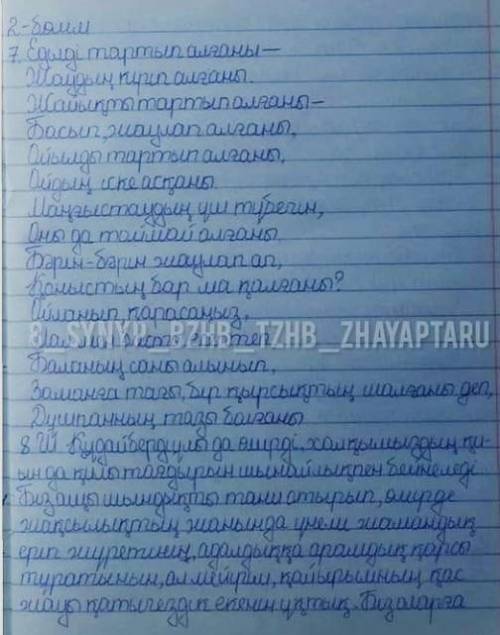 2-бөлім
7. Еділді тартып алғаны—
Жаудың кіріп алғаны.
Жайықты тартып алғаны—
Басып, жаулап алғаны,
Ойылды тартып алғаны,
Ойдың іске асқаны.
Маңғыстаудың үш түрегін,
Оны да тоймай алғаны.
Бәрін-бәрін жаулап ап,
Қоныстың бар ма қалғаны?
Ойланып қарасаңыз,
8_SYNYP_PZHB_TZHB_ZHAYAPTARU
Баланың саны алынып,
Заманға тағы, бір қырсықтың шалғаны деп,
Душпанның тазы болғаны
8 Ш. Құдайбердіұлы да өмірді. халқымыздың қи-
ын да қилы тағдырын шынайлықпен бейнеледі
Біз ащы шындықты тани отырып, өмірде
жақсылықтың жанында үнемі жамандық
еріп жүретінің, адалдыққа арамдық қарсы
тұратынын, ал мейірім, қайырымның қас
жауы қатыгездік екенің ұқтық. Біз оларға